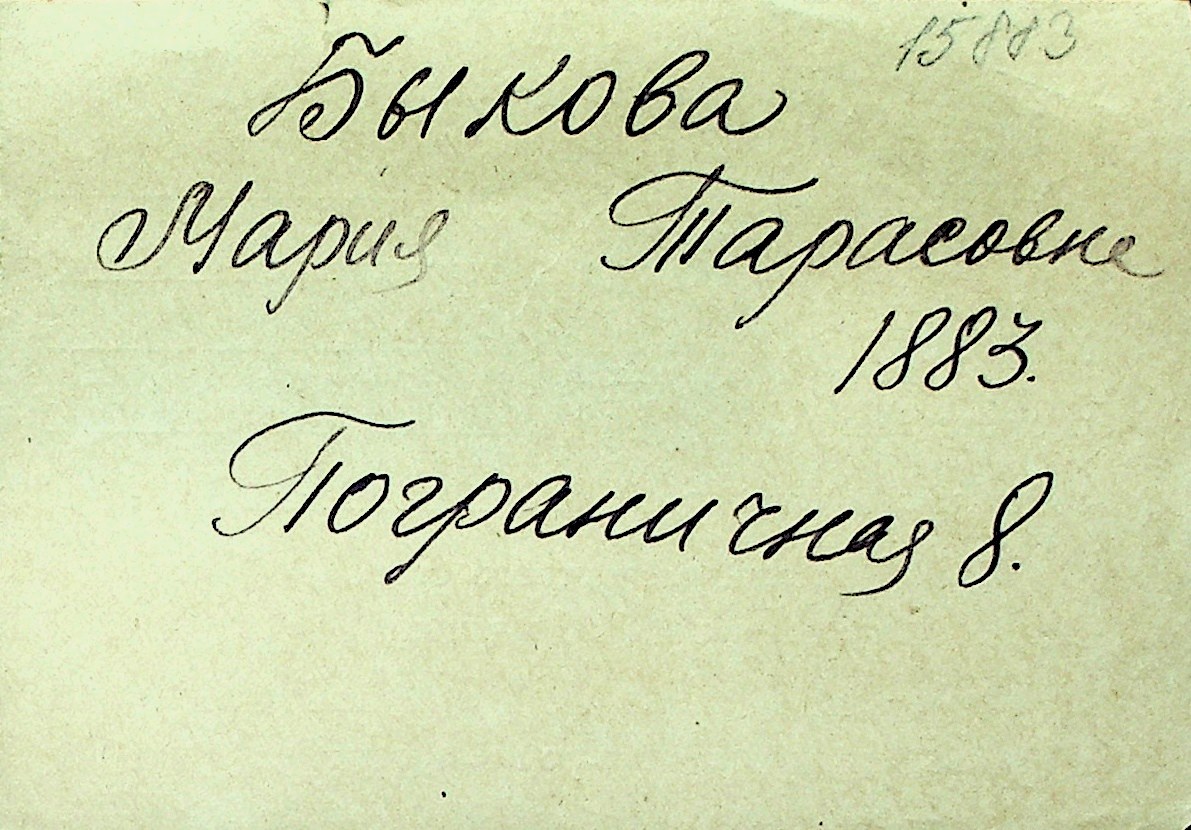 15883
Быкова
Мария Тарасовна
1883.
Пограничная 8.